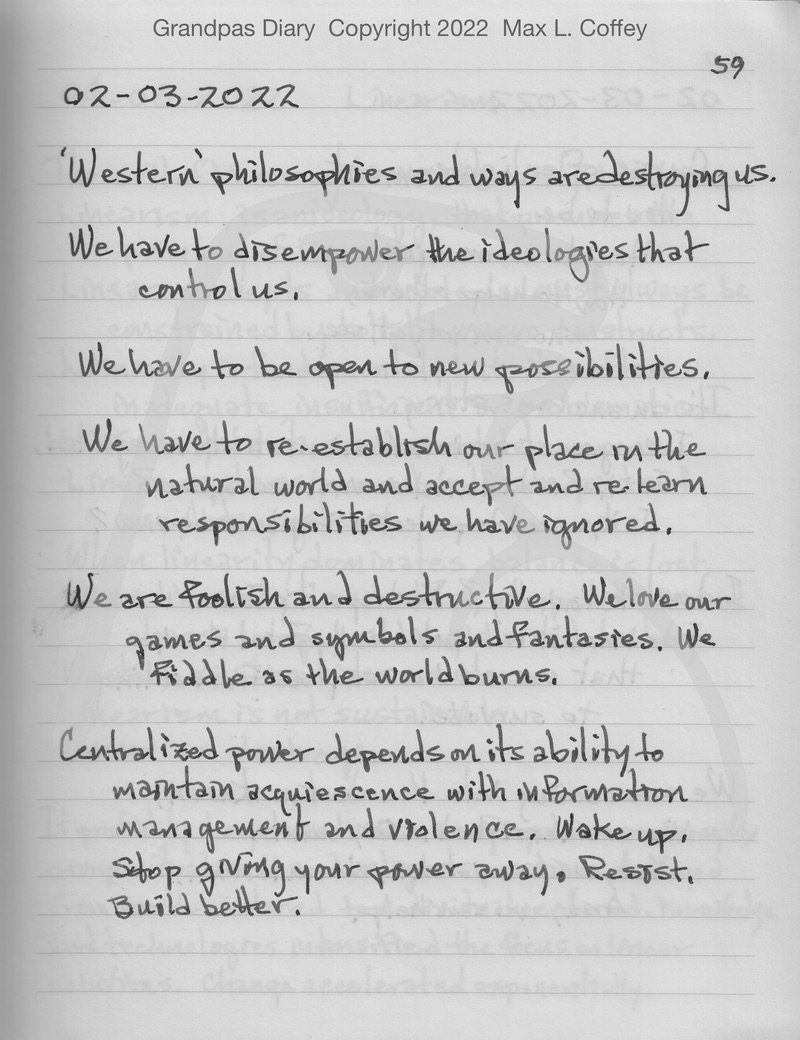 Grandpas Diary Copyright 2022 Max L. Coffey
59
02-03-2022
'Western' philosophies and ways are destroying us.
We have to disempower the ideologies that
control us.
We have to be open to new possibilities.
We have to re-establish our place in the
natural world and accept and re-learn
responsibilities we have ignored.
We are foolish and destructive. We love our
games and symbols and fantasies. We
fiddle as the world burns.
Centralized power depends on its ability to
maintain acquiescence with information
management and violence. Wake up.
Stop giving your power away. Resist.
Build better.